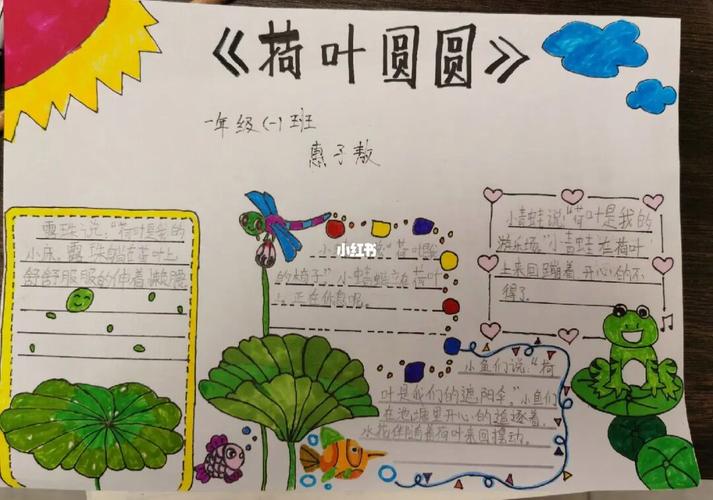 《荷叶圆圆》
一年级(一)班
惠子敖
露珠说:"荷叶是我的
小床。露珠躺在荷叶上
舒舒服服的伸着懒腰
小 "荷叶是
小红书
的椅子"小蜻蜓立在荷叶
上正在休息呢。
小青蛙说"荷叶是我的
游乐场"小青蛙在荷叶
上来回蹦着开心的不
得了
小鱼们说:"荷
叶是我们的遮阳伞。"小鱼们
在池塘里开心的追逐着,
水花伴随着荷叶来回摆动。